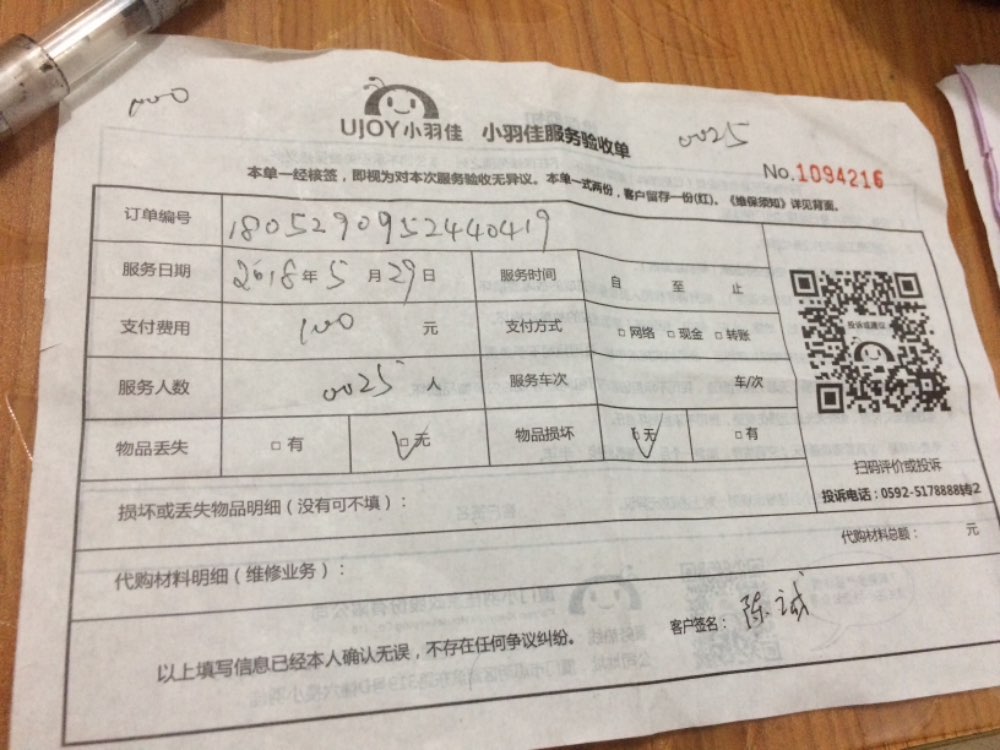 UJOY小羽佳 小羽佳服务验收单
0025
No.1094216
本单一经核签，即视为对本次服务验收无异议。本单一式两份，客户留存一份(红)。《维保须知》详见背面。
订单编号 18052909524440419
服务日期 2018年5月29日 服务时间 自 至 止
支付费用 100 元 支付方式 □网络 □现金 □转账
服务人数 0025 人 服务车次 车/次
物品丢失 □有 □无 物品损坏 □无 □有
投诉或建议
扫码评价或投诉
投诉电话：0592-5178888转2
损坏或丢失物品明细（没有可不填）：
代购材料明细（维修业务）：
代购材料总额： 元
以上填写信息已经本人确认无误，不存在任何争议纠纷。
客户签名：陈诚